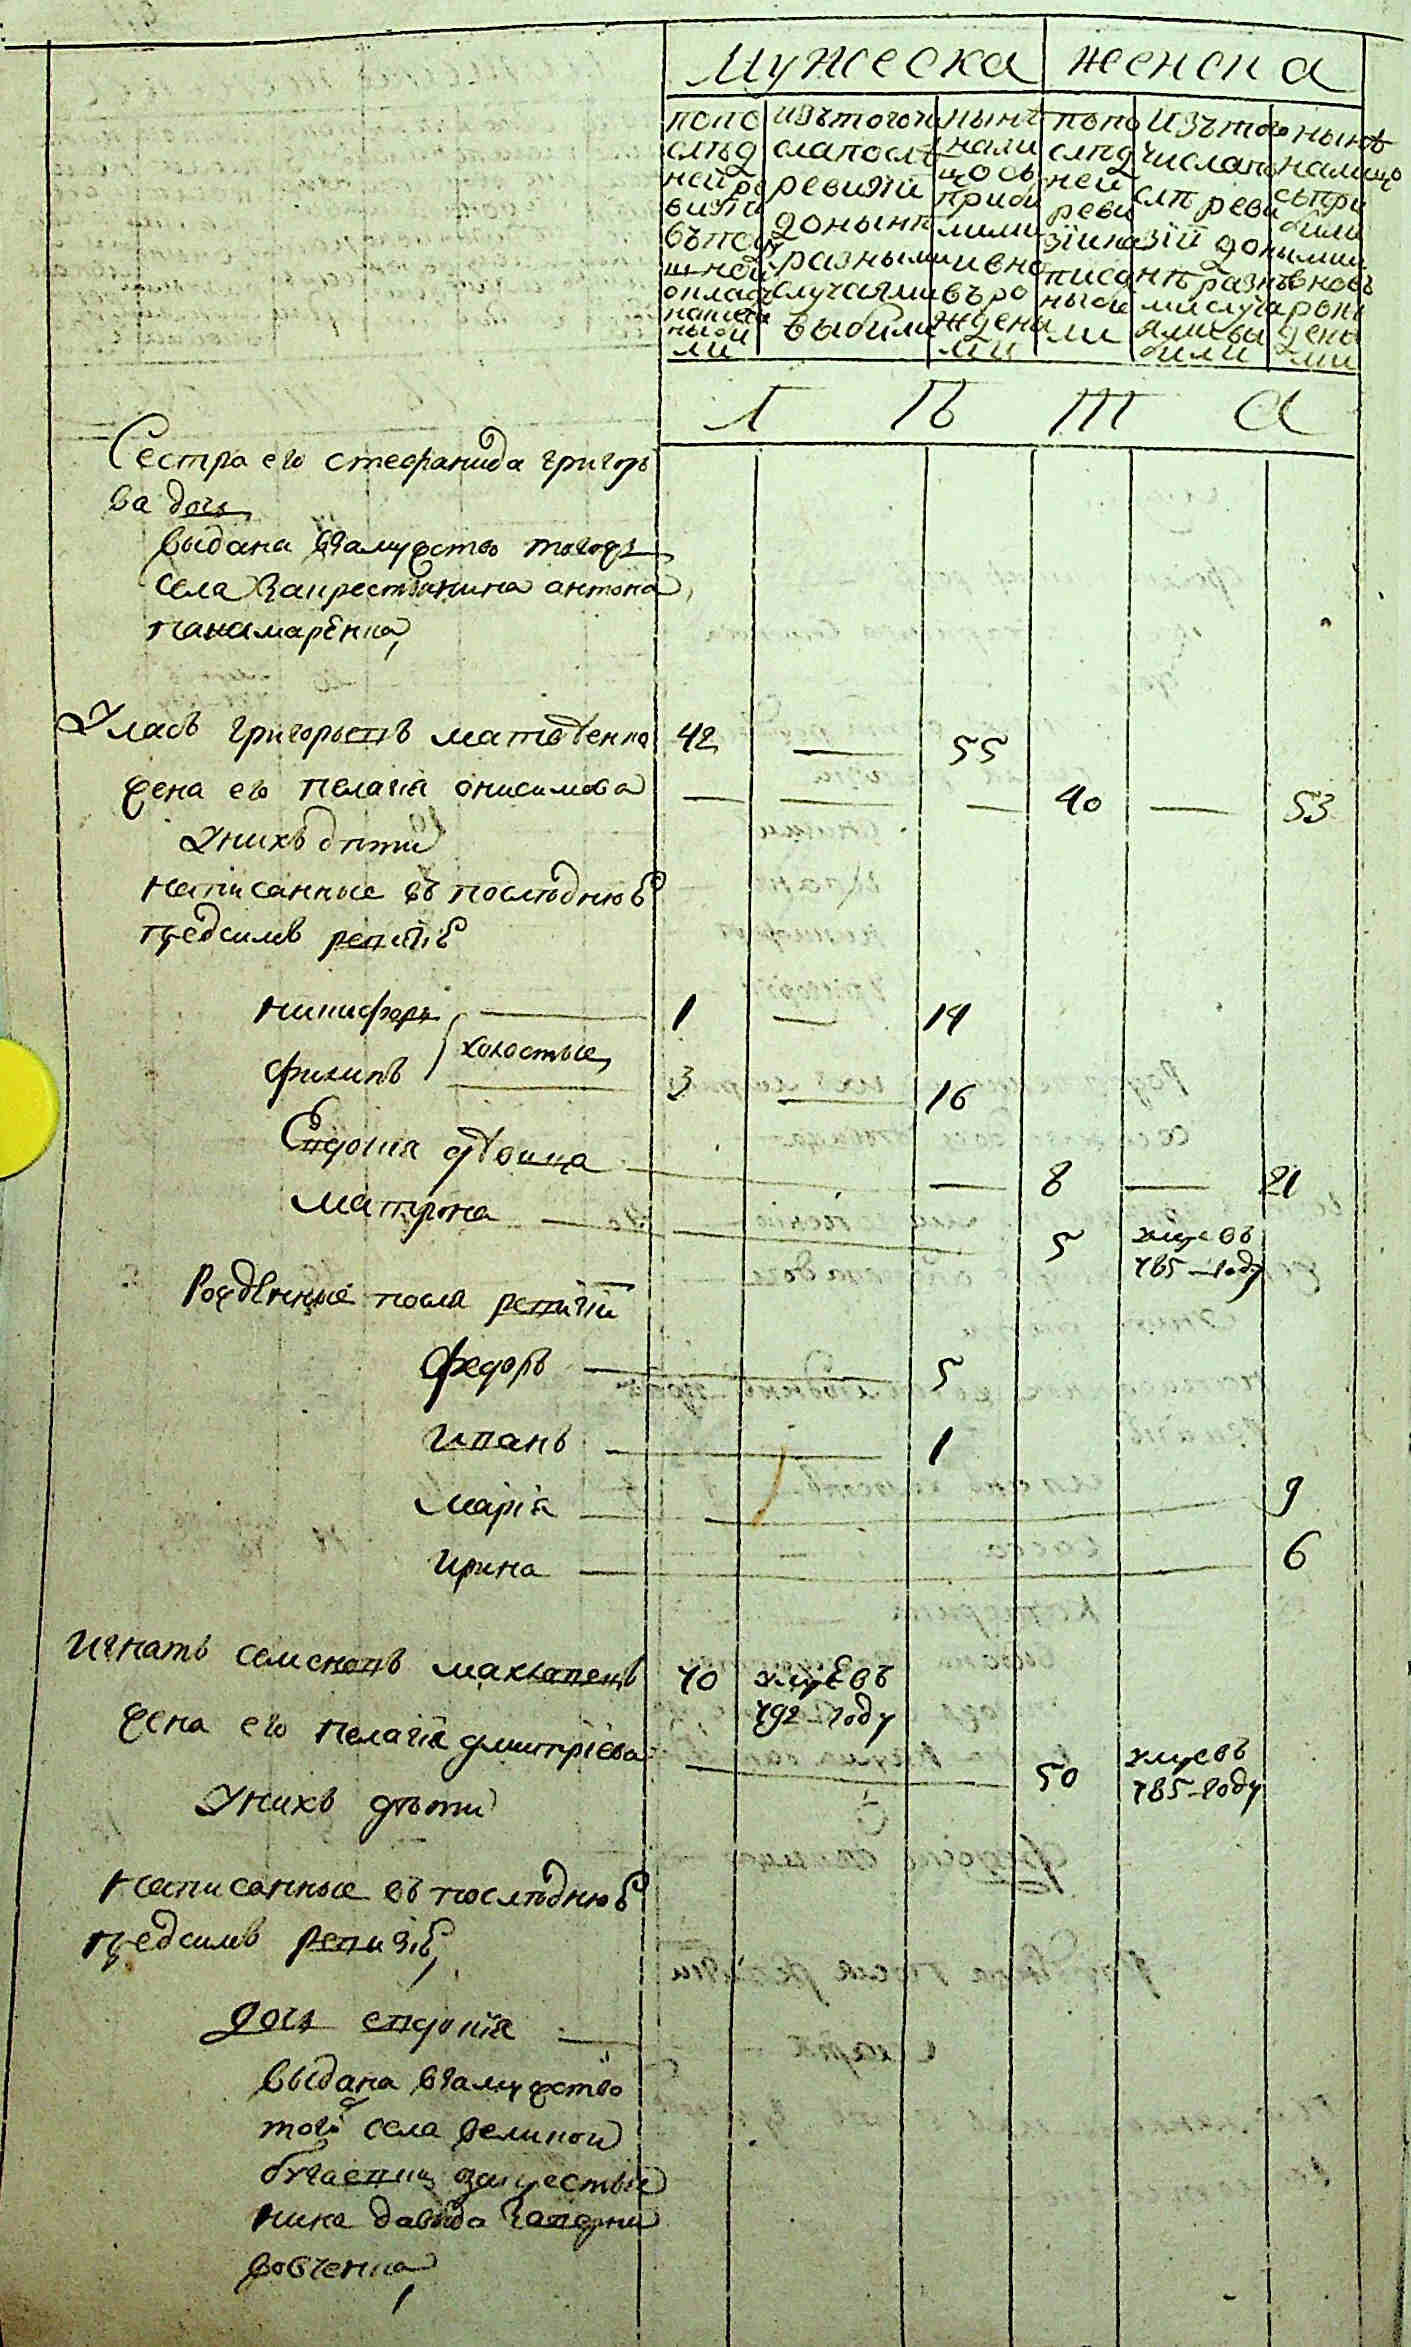 мужеска женска
попо
слѣд
ней ре
визіи
изътогочи
слапослѣ
ревизіи
донынѣ
разными
случаями
выбили
нынѣ
нали
цось
приби
лими
ивно
въро
ждены
ми
попо
слѣд
ней
реви
зіи на
писа
ныби
ли
изътого
числапо
слѣ реви
зіи до
нѣ разны
ми случа
ями вы
били
нынѣ
налицо
сьпри
били
ми
вновь
рож
дены
ми
Л Ѣ Т А
Сестра его стефанида григорь
ва дочь
выдана взамужство тогожъ
села закрестьянина антона
панамарѣнка,
Уласъ григорьевъ матвѣенко 42 — 55
жена его пелагія онисимова — — — 40 — 53
Унихъ дѣти
написанные въ послѣднюю
предсимъ ревизію
никифоръ — 1 — 14
холостые
филипъ — 3 — 16
Евдокія дѣвица — — 8 — 21
матрона — — 5 умре въ
785 году
Рожденные посля ревизіи
федоръ — 5
иванъ — 1
марія — 9
ирина — 6
игнатъ семеновъ 70 умре въ
792 году
жена его пелагія дмитріева — 50 умре въ
785 году
Унихъ дѣти
написанные въ послѣднюю
предсимъ ревизію,
дочь евдокія —
выдана взамужство
того села великой
за крестья
нина давида